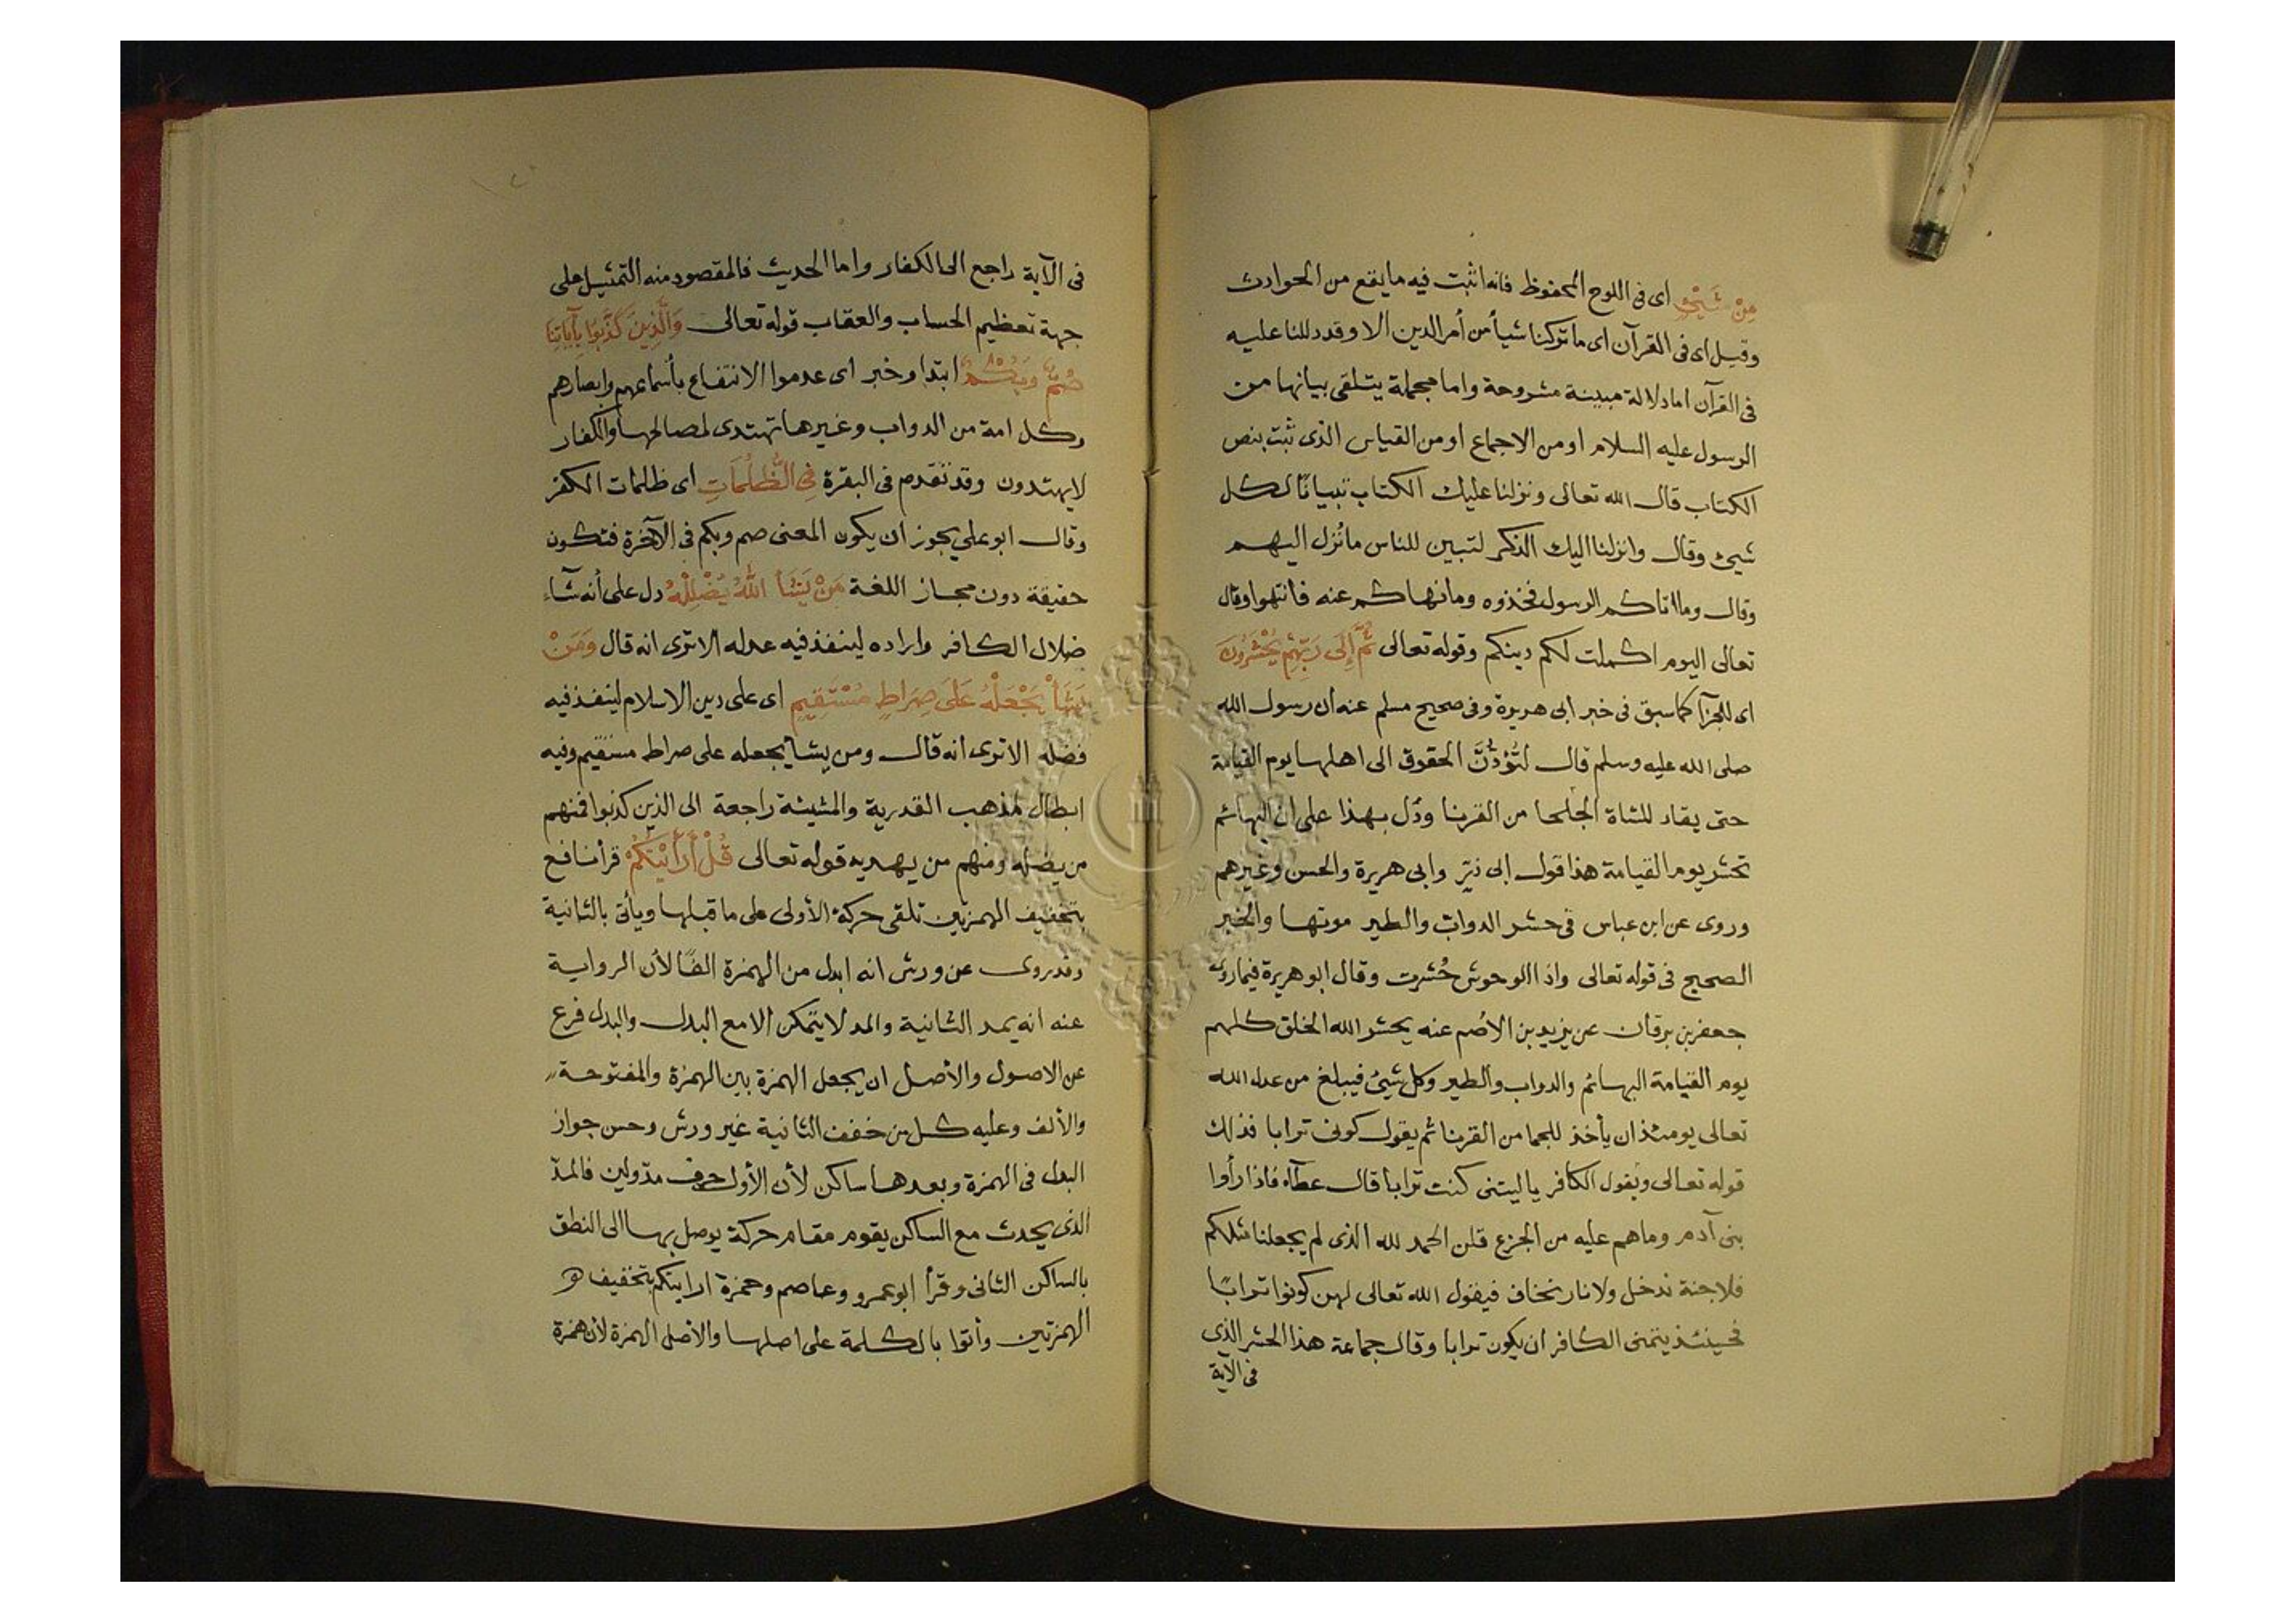 مِنْ شَيْءٍ اى فى اللوح المحفوظ فانه اثبت فيه ما يقع من الحوادث
وقيل اى فى القرآن اى ما تركنا شيأ من أمر الدين الا وقد دللنا عليه
فى القرآن اما دلالة مبينة مشروحة واما مجملة يتلقى بيانها من
الرسول عليه السلام او من الاجماع او من القياس الذى ثبت بنص
الكتاب قال الله تعالى ونزلنا عليك الكتاب تبيانًا لكل
شيئ وقال وانزلنا اليك الذكر لتبين للناس ما نُزل اليهم
وقال وما اتاكم الرسول فخذوه وما نهاكم عنه فانتهوا وقال
تعالى اليوم اكملت لكم دينكم وقوله تعالى ثُمَّ إِلَى رَبِّهِمْ يُحْشَرُونَ
اى للجزآ كما سبق فى خبر ابى هريرة وفى صحيح مسلم عنه أن رسول الله
صلى الله عليه وسلم قال لتُؤدُّنَّ الحقوق الى اهلها يوم القيامة
حتى يقاد للشاة الجلحا من القرنا ودُل بهذا على ان البهائم
تحشر يوم القيامة هذا قول ابى ذر وابى هريرة والحسن وغيرهم
وروى عن ابن عباس فى حشر الدواب والطير موتها والخبر
الصحيح فى قوله تعالى واذا الوحوش حُشرت وقال ابو هريرة فيما روى
جعفر بن برقان عن يزيد بن الأصم عنه يحشر الله الخلق كلهم
يوم القيامة البهائم والدواب والطير وكل شيئ فيبلغ من عدل الله
تعالى يومئذ ان يأخذ للجما من القرنا ثم يقول كونى ترابا فذلك
قوله تعالى ويقول الكافر يا ليتنى كنت ترابا قال عطآء فاذا رأوا
بنى آدم وما هم عليه من الجزع قلن الحمد لله الذى لم يجعلنا مثلكم
فلا جنة ندخل ولا نار نخاف فيقول الله تعالى لهن كونوا ترابًا
فحينئذ يتمنى الكافر ان يكون ترابا وقال جماعة هذا الحشر الذى
فى الآية
فى الآية راجع الى الكفار واما الحديث فالمقصود منه التمثيل على
جهة تعظيم الحساب والعقاب قوله تعالى وَالَّذِينَ كَذَّبُوا بِآيَاتِنَا
صُمٌّ وَبُكْمٌ ابتدا وخبر اى عدموا الانتفاع بأسماعهم وابصارهم
وكل امة من الدواب وغيرها تهتدى لمصالحها والكفار
لا يهتدون وقد تقدم فى البقرة فِى الظُّلُمَاتِ اى ظلمات الكفر
وقال ابو على يجوز ان يكون المعنى صم وبكم فى الآخرة فتكون
حقيقة دون مجاز اللغة مَنْ يَشَأ اللّهُ يُضْلِلْهُ دل على أنه شآء
ضلال الكافر واراده لينفذ فيه عدله الا ترى انه قال وَمَنْ
يَشَأْ يَجْعَلْهُ عَلَى صِرَاطٍ مُسْتَقِيمٍ اى على دين الاسلام لينفذ فيه
فضله الا ترى انه قال ومن يشأ يجعله على صراط مستقيم وفيه
ابطال لمذهب القدرية والمشيئة راجعة الى الذين كذبوا فمنهم
من يضله ومنهم من يهديه قوله تعالى قُلْ أَرَأَيْتَكُمْ قرأ نافع
بتخفيف الهمزتين تلقى حركة الأولى على ما قبلها ويأتى بالثانية
وقد روى عن ورش انه ابدل من الهمزة الفًا لأن الرواية
عنه انه يمد الثانية والمد لا يتمكن الا مع البدل والبدل فرع
عن الاصول والأصل ان يجعل الهمزة بين الهمزة والمفتوحة
والألف وعليه كل من خفف الثانية غير ورش وحسن جواز
البدل فى الهمزة وبعدها ساكن لأن الأول حرف مدّ ولين فالمدّ
الذى يحدث مع الساكن يقوم مقام حركة يوصل بها الى النطق
بالساكن الثانى وقرأ ابو عمرو وعاصم وحمزة ارايتكم بتخفيف
الهمزتين وأتوا بالكلمة على اصلها والأصل الهمزة لأن همزة